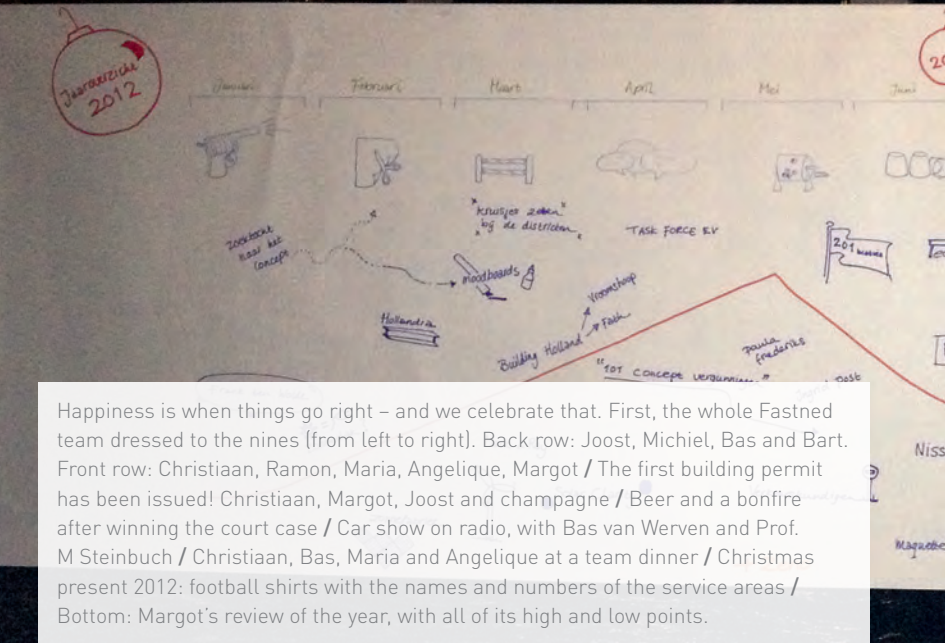 Jaaroverzicht
2012
20
Januari Februari Maart April Mei Juni
"Kruisjes zetten"
"bij de districten"
TASK FORCE EV
201
Zoektocht
naar het
concept
moodboards
Hollandia
Vroomshoop
Building Holland
Paula
Frederiks
"101 concept vergunningen"
Post
Niss
Maquette
Happiness is when things go right – and we celebrate that. First, the whole Fastned
team dressed to the nines (from left to right). Back row: Joost, Michiel, Bas and Bart.
Front row: Christiaan, Ramon, Maria, Angelique, Margot / The first building permit
has been issued! Christiaan, Margot, Joost and champagne / Beer and a bonfire
after winning the court case / Car show on radio, with Bas van Werven and Prof.
M Steinbuch / Christiaan, Bas, Maria and Angelique at a team dinner / Christmas
present 2012: football shirts with the names and numbers of the service areas /
Bottom: Margot's review of the year, with all of its high and low points.